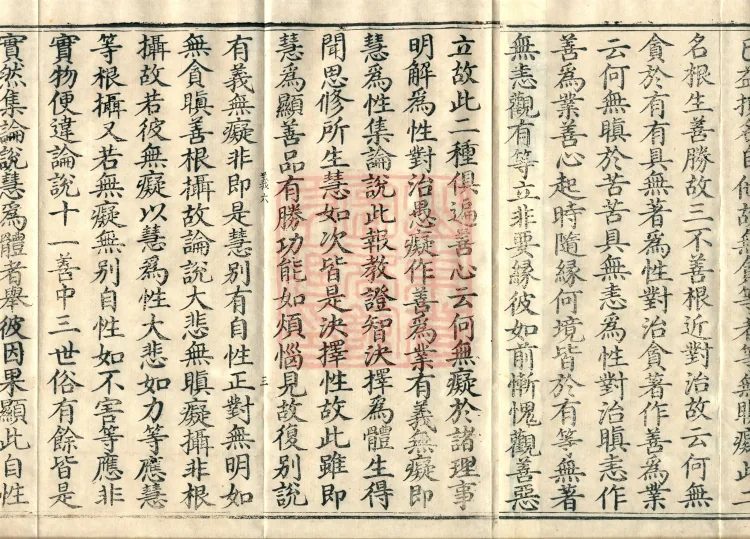 名根生善勝故三不善根近對治故云何無
貪於有有具無著爲性對治貪著作善爲業
云何無瞋於苦苦具無恚爲性對治瞋恚作
善爲業善心起時隨緣何境皆於有等無著
無恚觀有等立非要緣彼如前慚愧觀善惡
立故此二種俱遍善心云何無癡於諸理事
明解爲性對治愚癡作善爲業有義無癡即
慧爲性集論說此報教證智決擇爲體生得
聞思修所生慧如次皆是決擇性故此雖即
慧爲顯善品有勝功能如煩惱見故復別說
義六 三
有義無癡非即是慧別有自性正對無明如
無貪瞋善根攝故論說大悲無瞋癡攝非根
攝故若彼無癡以慧爲性大悲如力等應慧
等根攝又若無癡無別自性如不害等應非
實物便違論說十一善中三世俗有餘皆是
實然集論說慧爲體者舉彼因果顯此自性